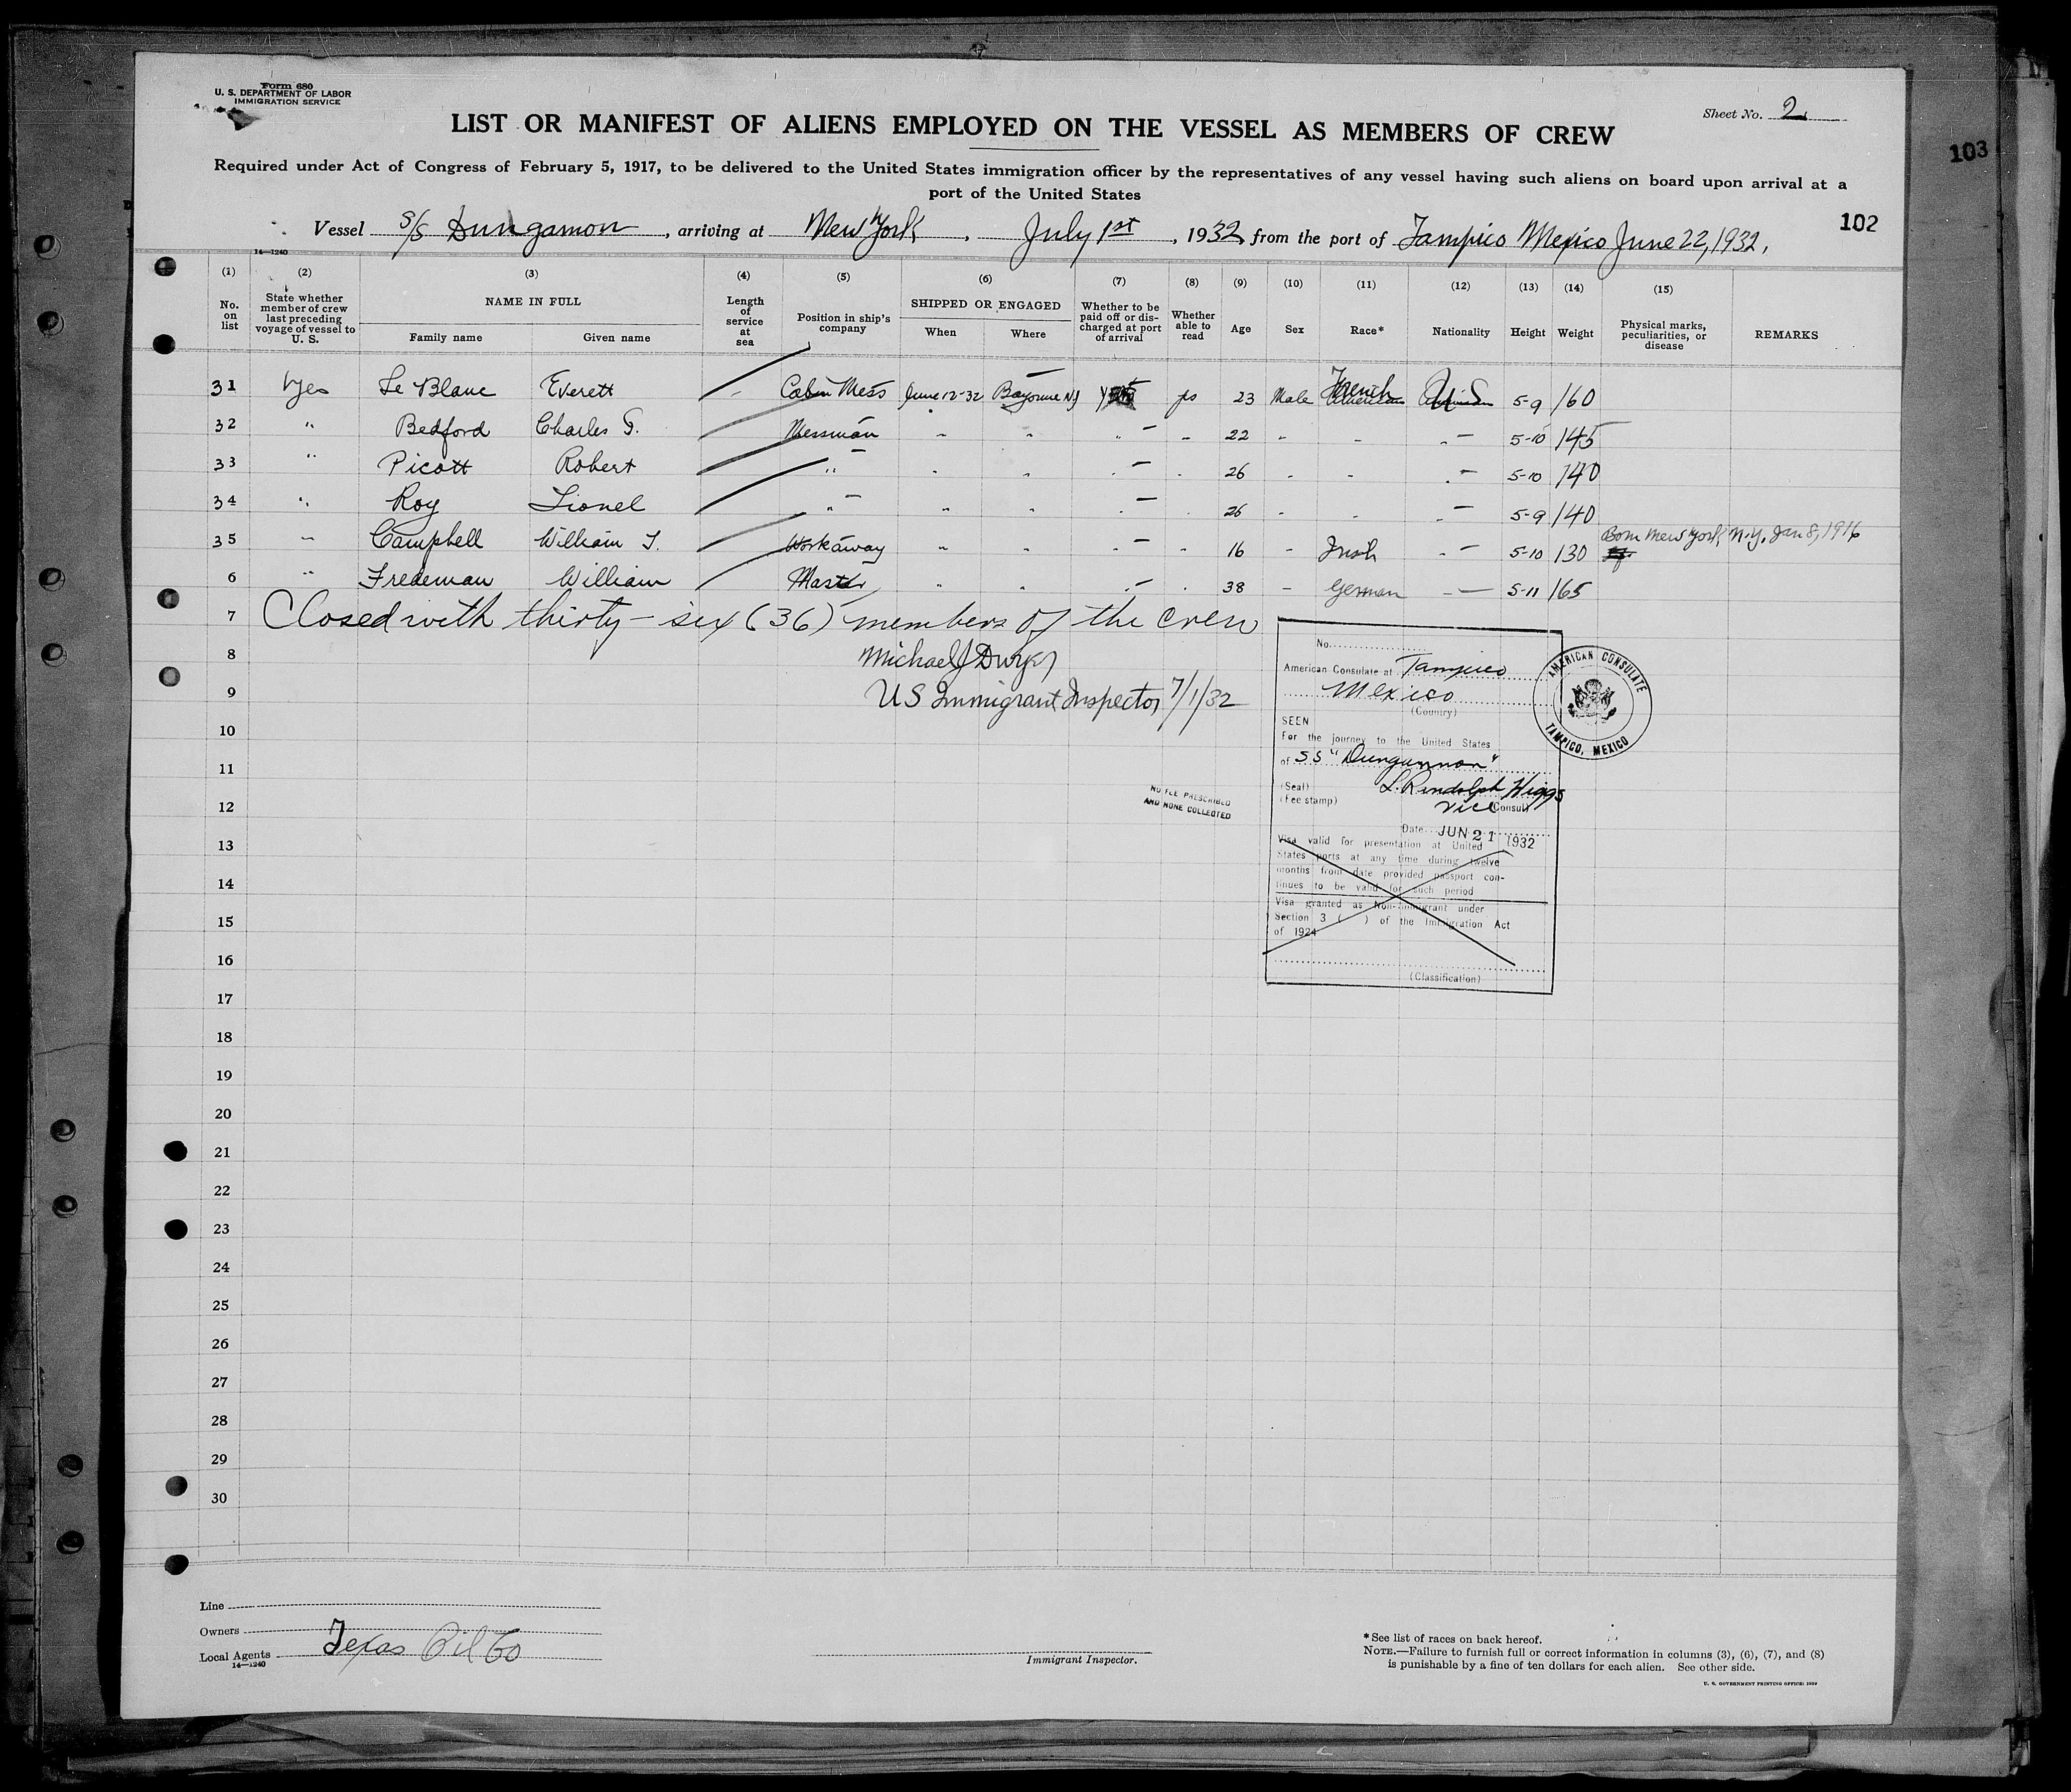 Form 680
U. S. DEPARTMENT OF LABOR
IMMIGRATION SERVICE
Sheet No. 2
LIST OR MANIFEST OF ALIENS EMPLOYED ON THE VESSEL AS MEMBERS OF CREW
103
Required under Act of Congress of February 5, 1917, to be delivered to the United States immigration officer by the representatives of any vessel having such aliens on board upon arrival at a
port of the United States
102
Vessel S/S Dungannon, arriving at New York, July 1st, 1932, from the port of Tampico Mexico June 22, 1932,
14—1240
(1) (2) (3) (4) (5) (6) (7) (8) (9) (10) (11) (12) (13) (14) (15)
No. on list | State whether member of crew last preceding voyage of vessel to U. S. | NAME IN FULL | Family name | Given name | Length of service at sea | Position in ship's company | SHIPPED OR ENGAGED | When | Where | Whether to be paid off or discharged at port of arrival | Whether able to read | Age | Sex | Race* | Nationality | Height | Weight | Physical marks, peculiarities, or disease | REMARKS
31 Yes Le Blanc Everett Cabin Mess June 12-32 Bayonne NJ yes 23 Male French US 5-9 160
32 " Bedford Charles Messman " " " " 22 " " " 5-10 145
33 " Picott Robert " " " " " 26 " " " 5-10 140
34 " Roy Lionel " " " " " 26 " " " 5-9 140
35 " Campbell William Workaway " " " " 16 " Irish " 5-10 130 Born New York, N.Y. Jan 8, 1916
6 " Fredeman William Master " " " " 38 " German " 5-11 165
7 Closed with thirty-six (36) members of the crew
8 Michael J Dwyer
9 US Immigrant Inspector 7/1/32
10
11
12
13
14
15
16
17
18
19
20
21
22
23
24
25
26
27
28
29
30
No.
American Consulate at Tampico
Mexico
(Country)
SEEN
For the journey to the United States
of SS "Dungannon"
(Seal) L. Randolph Higgs
(Fee stamp) Vice Consul
Date JUN 21 1932
Visa valid for presentation at United
States ports at any time during twelve
months from date provided passport con-
tinues to be valid for such period
Visa granted as Non-Immigrant under
Section 3 ( ) of the Immigration Act
of 1924
(Classification)
AMERICAN CONSULATE
TAMPICO, MEXICO
NO FEE PRESCRIBED
AND NONE COLLECTED
Line
Owners
Local Agents Texas Oil Co
14—1240
Immigrant Inspector.
* See list of races on back hereof.
NOTE.—Failure to furnish full or correct information in columns (3), (6), (7), and (8)
is punishable by a fine of ten dollars for each alien. See other side.
U. S. GOVERNMENT PRINTING OFFICE: